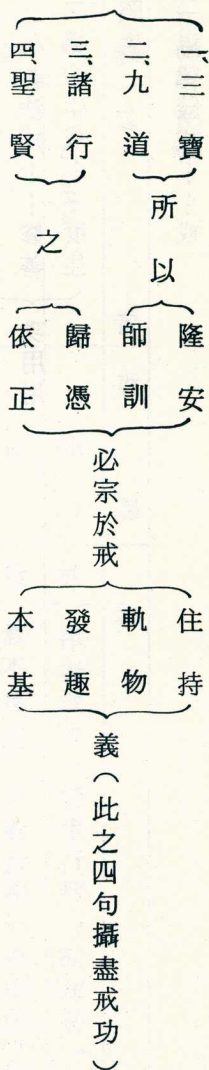 一、三寶
二、九道
三、諸行
四、聖賢
所以
之
隆安
師訓
歸憑
依正
必宗於戒
住持
軌物
發趣
本基
義（此之四句攝盡戒功）